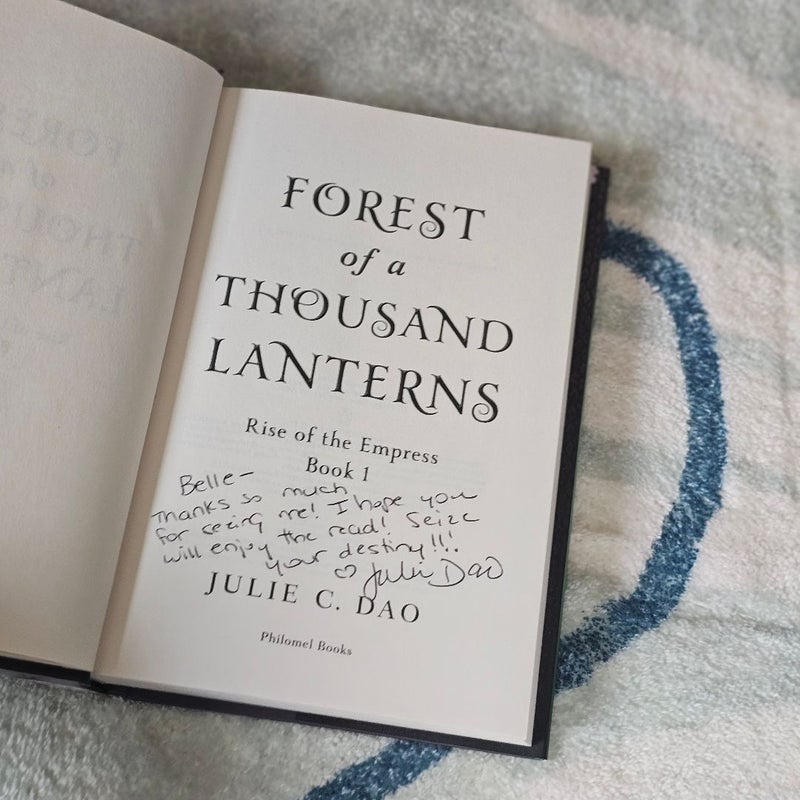 FOREST
of a
THOUSAND
LANTERNS
Rise of the Empress
Book 1
Belle-
Thanks so much
for seeing me! I hope you
will enjoy the read! Seize
your destiny!!!
♡ Julie Dao
JULIE C. DAO
Philomel Books